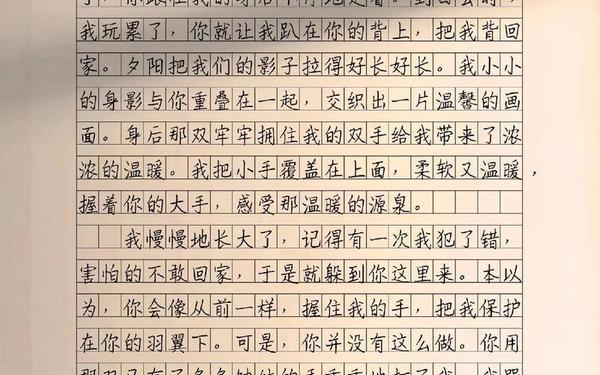 我玩累了，你就让我趴在你的背上，把我背回
家。夕阳把我们的影子拉得好长好长。我小小
的身影与你重叠在一起，交织出一片温馨的画
面。身后那双牢牢拥住我的双手给我带来了浓
浓的温暖。我把小手覆盖在上面，柔软又温暖，
握着你的大手，感受那温暖的源泉。
我慢慢地长大了，记得有一次我犯了错，
害怕的不敢回家，于是就躲到你这里来。本以
为，你会像从前一样，握住我的手，把我保护
在你的羽翼下。可是，你并没有这么做。你用